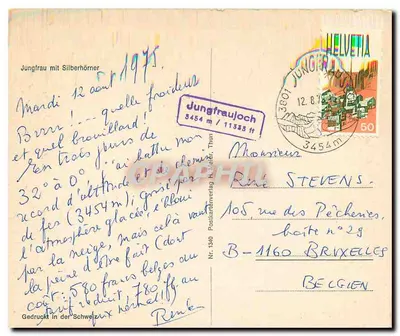 Jungfrau mit Silberhörner
Mardi 12 août 1975
Brrr! ... quelle froideur
et quel brouillard!
En trois jours de
32° à 0°, j'ai battu mon
record d'altitude et de chemin
de fer (3454 m), grisé par
l'atmosphère glacée, ébloui
par la neige, mais cela valait
la peine d'être fait (dont
coût: 580 francs belges au
tarif réduit, 780 ff au
prix normal!)
René
Gedruckt in der Schweiz
Jungfraujoch
3454 m / 11333 ft
HELVETIA
50
3801 JUNGFRAUJOCH
12.8.75
3454 m
Monsieur
René STEVENS
105, rue des Pêcheries,
boîte n° 28
B-1160 BRUXELLES
BELGIEN
Nr. 1340 Postkartenverlag Thun